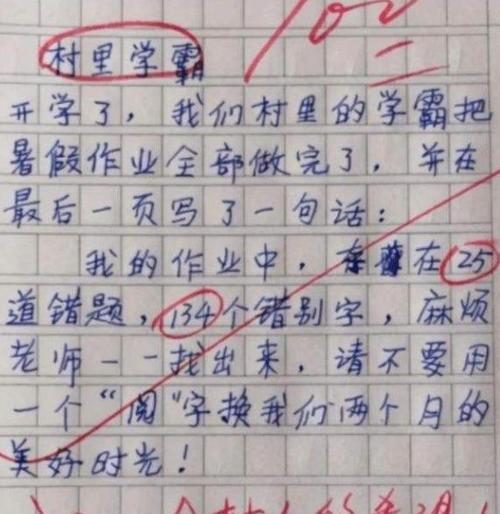 100
村里学霸
开学了，我们村里的学霸把
暑假作业全部做完了，并在
最后一页写了一句话：
我的作业中，存在25
道错题，134个错别字，麻烦
老师一一找出来，请不要用
一个“阅”字换我们两个月的
美好时光！